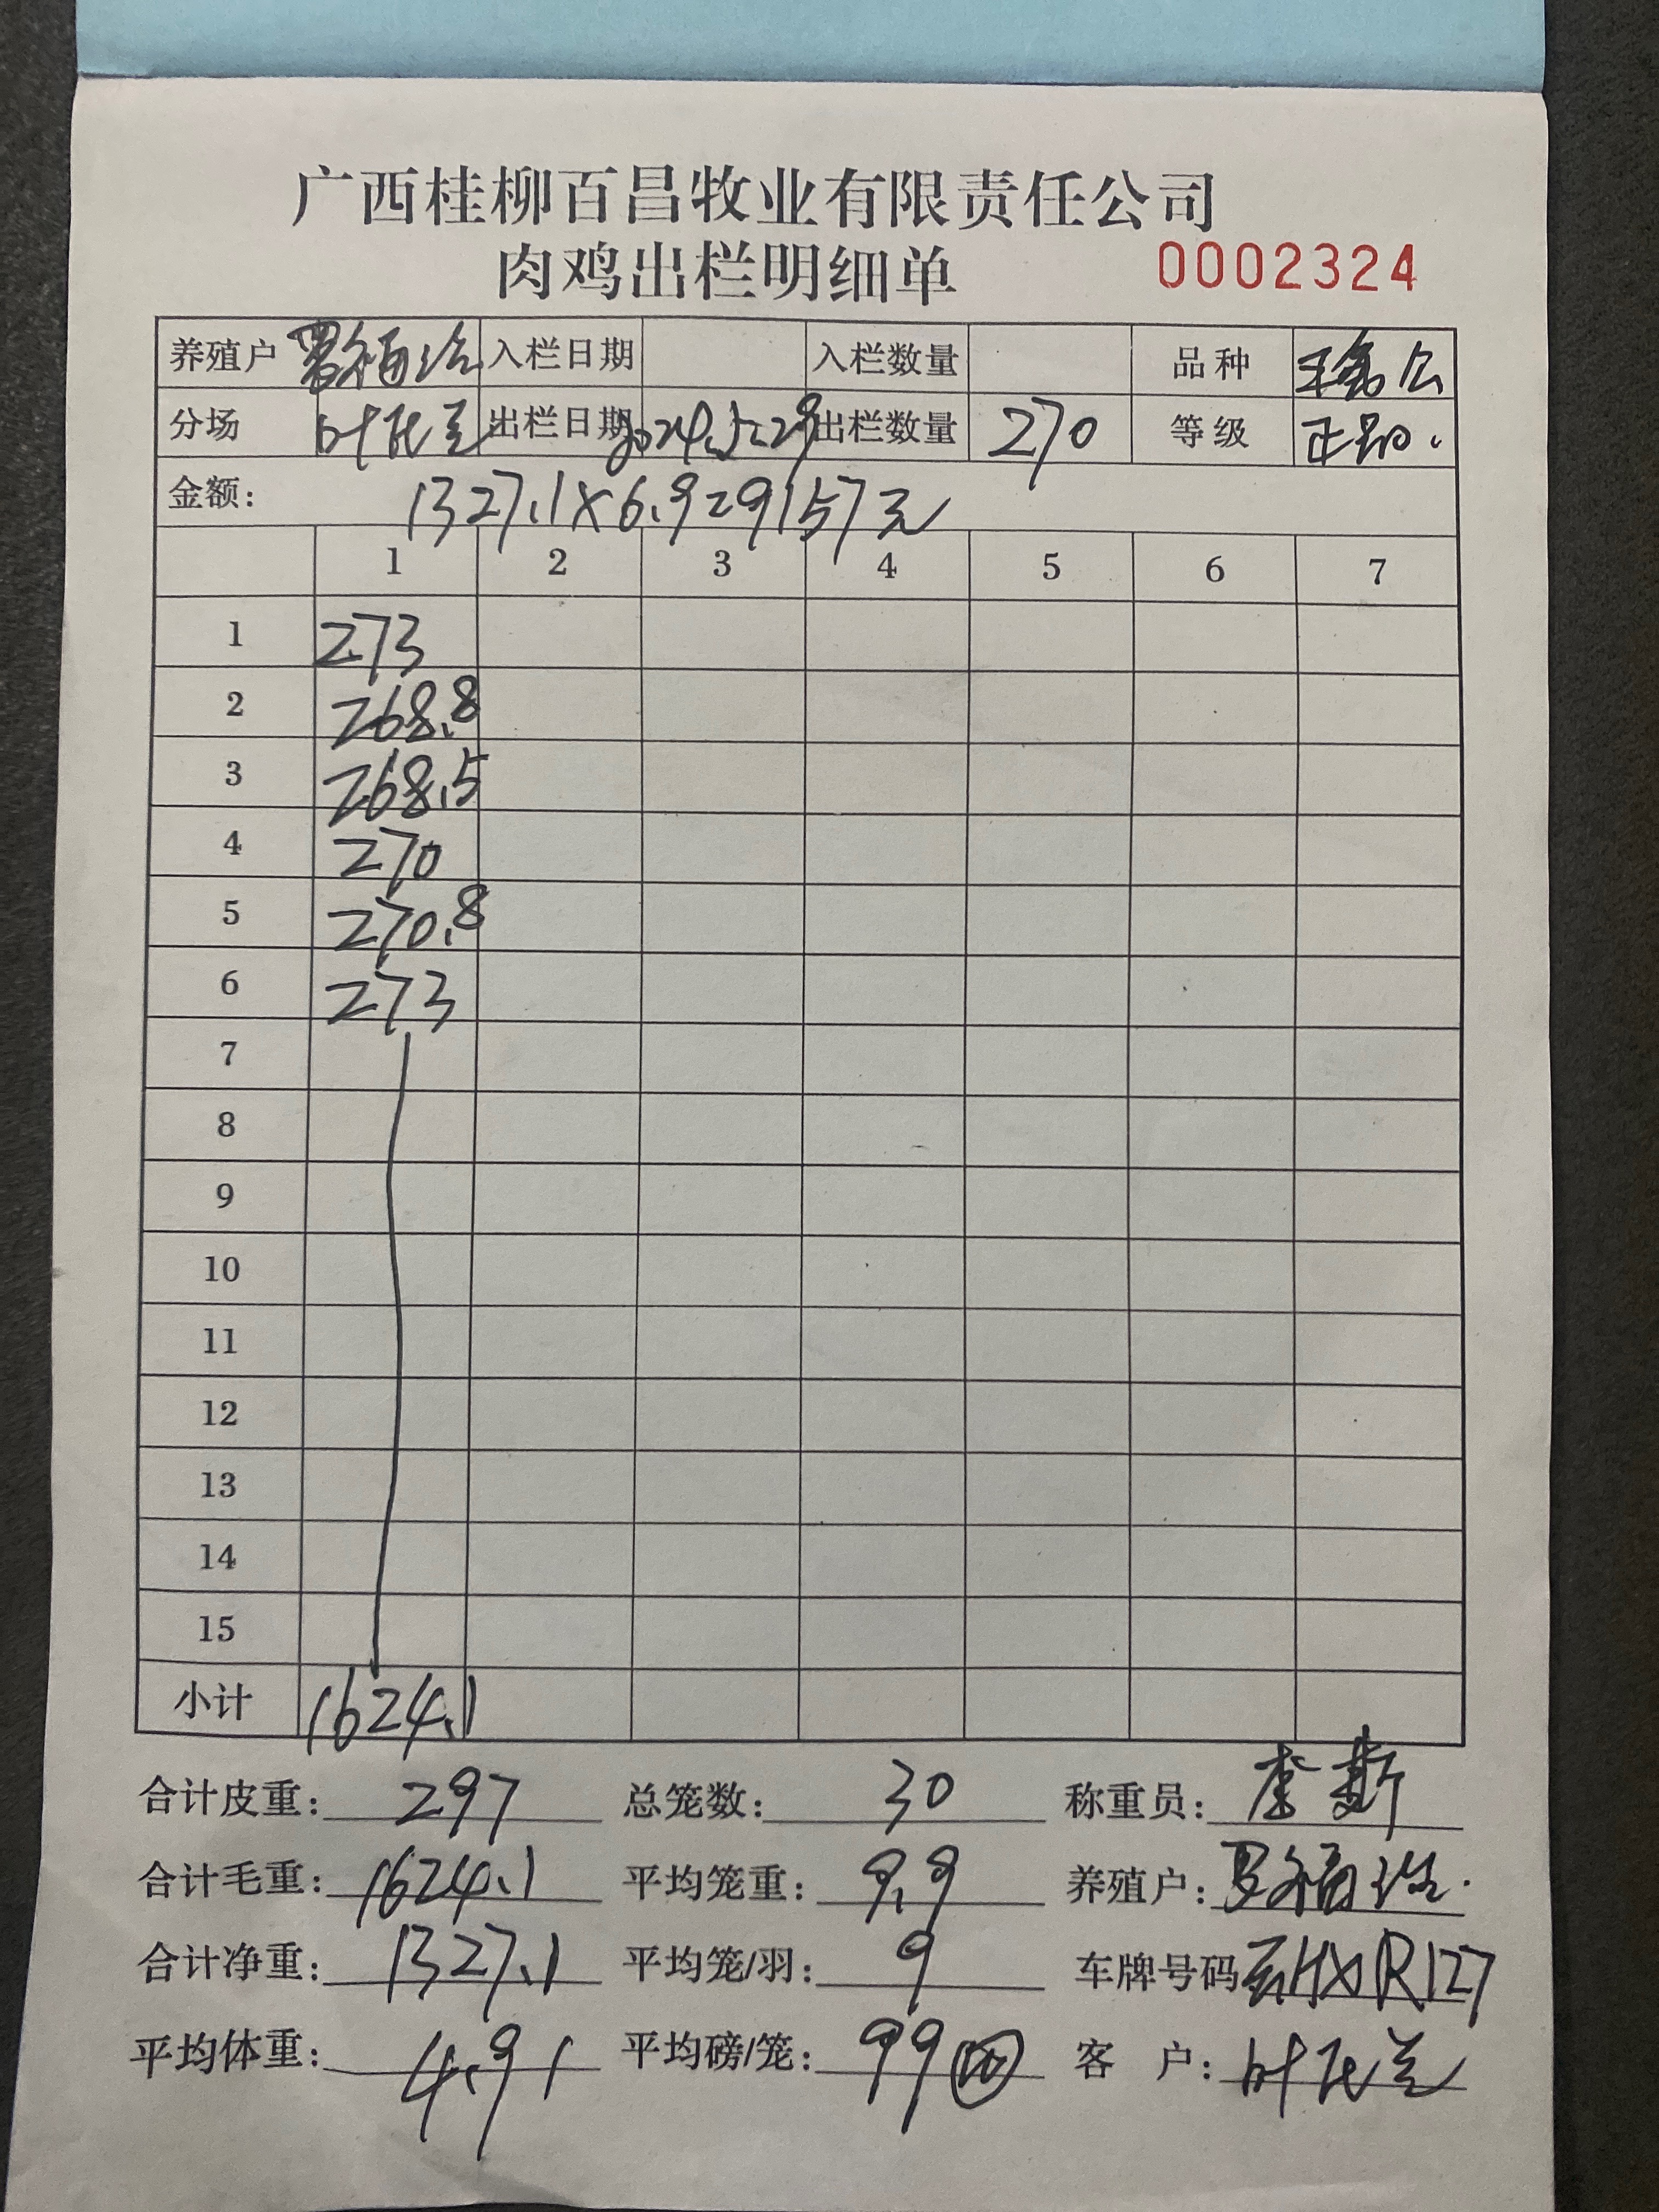 广西桂柳百昌牧业有限责任公司
肉鸡出栏明细单 0002324
养殖户 入栏日期 入栏数量 品种
分场 叶 出栏日期 2024.5.29 出栏数量 270 等级 正品
金额: 1327.1×6.9=9157元
1 2 3 4 5 6 7
1 273
2 268.8
3 268.5
4 270
5 270.8
6 273
7
8
9
10
11
12
13
14
15
小计 1624.1
合计皮重: 297 总笼数: 30 称重员: 李
合计毛重: 1624.1 平均笼重: 9.9 养殖户: 罗福
合计净重: 1327.1 平均笼/羽: 9 车牌号码 R127
平均体重: 4.91 平均磅/笼: 99 客 户: 叶